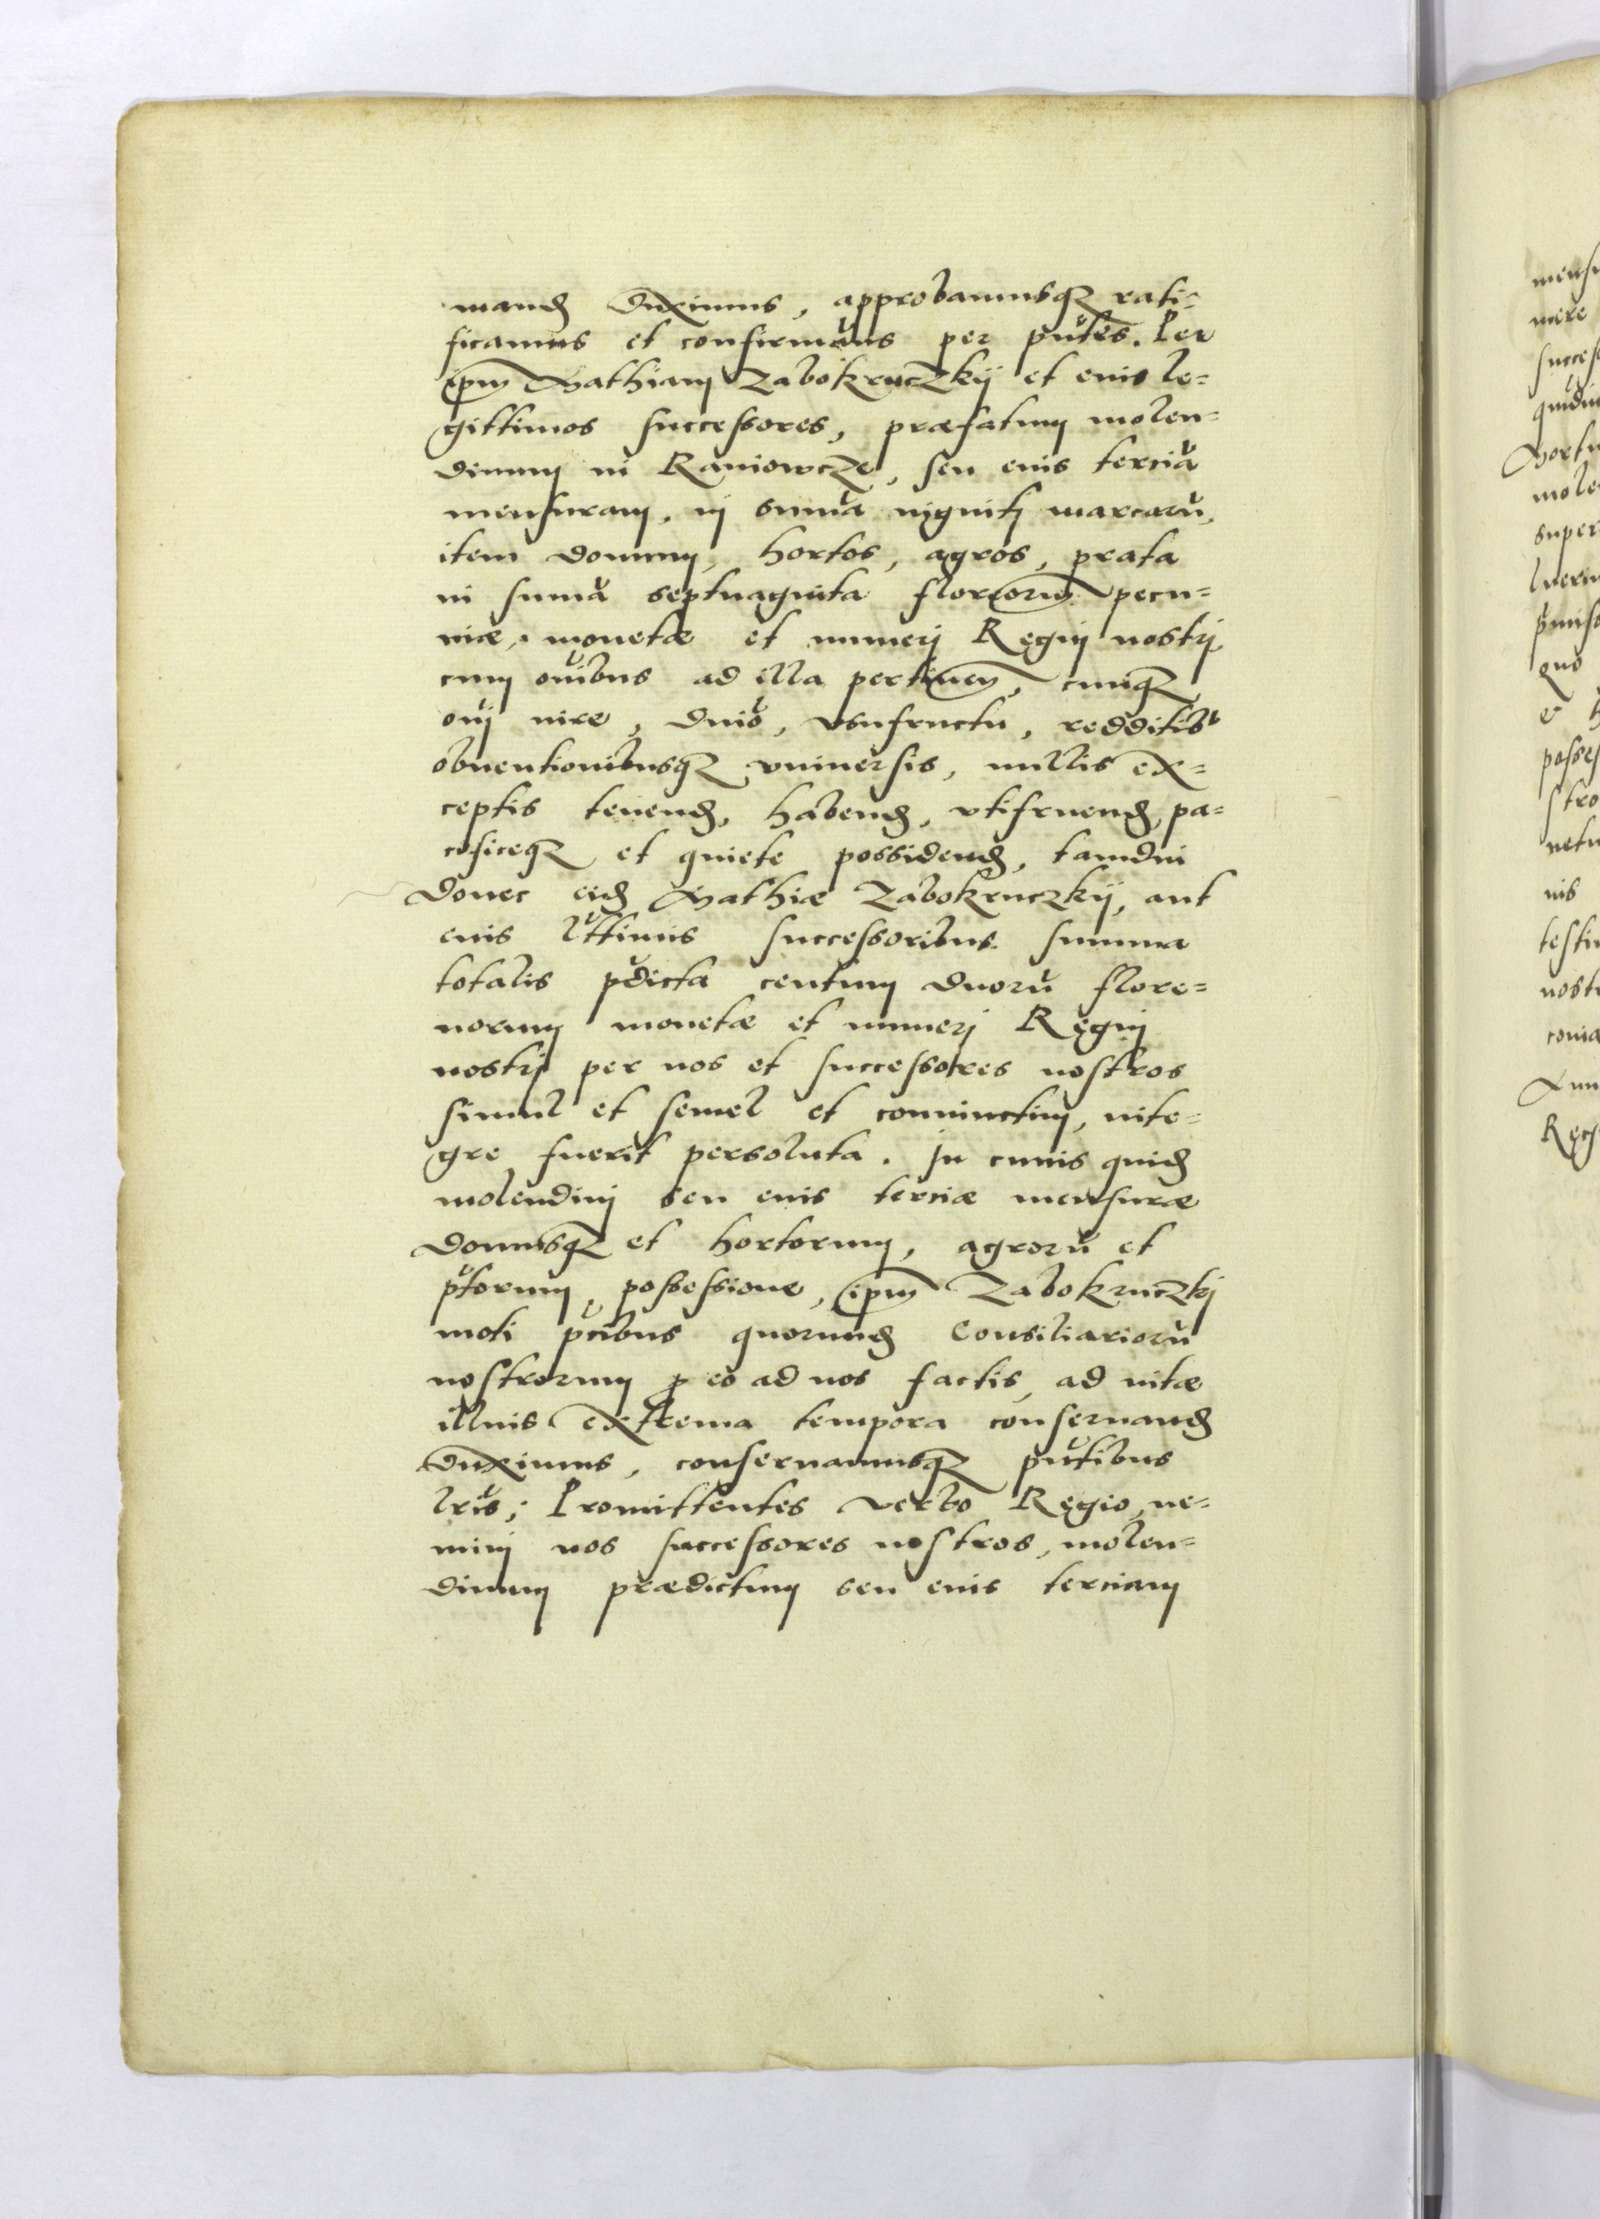 mand duximus, approbamusq rati-
ficamus et confirmamus per pntes. Per
ipm Mathiam Zabokruczkij et eius le-
gittimos successores, præfatum molen-
dinum in Raniowcze, seu eius terciā
mensuram, in sumā viginti marcarū,
item domum, hortos, agros, prata
in sumā septuaginta florenorum pecu-
niæ, monetæ et numeri Regni nostri
cum oĩbus ad illa pertinen, cumq
oĩ iure, dnio, vsufructu, redditibus
obuentionibusq vniuersis, nullis ex-
ceptis tenend, habend, vtifruend, pa-
cificeq et quiete possidend, tamdiu
donec eid Mathiæ Zabokruczkij, aut
eius lttimis successoribus summa
totalis pdicta centum duorū flore-
norum monetæ et numeri Regni
nostri per nos et successores nostros
simul et semel et coniunctim, inte-
gre fuerit persoluta. In cuius quid
molendini seu eius terciæ mensuræ
domusq et hortorum, agrorū et
ptorum, possessione, ipm Zabokruczkj
moti pcibus quorund Consiliariorū
nostrorum p eo ad nos factis, ad vitæ
illius extrema tempora conseruand
duximus, conseruamusq pntibus
lris; Promittentes verbo Regio, ne-
mini nos successores nostros, molen-
dinum prædictum seu eius terciam